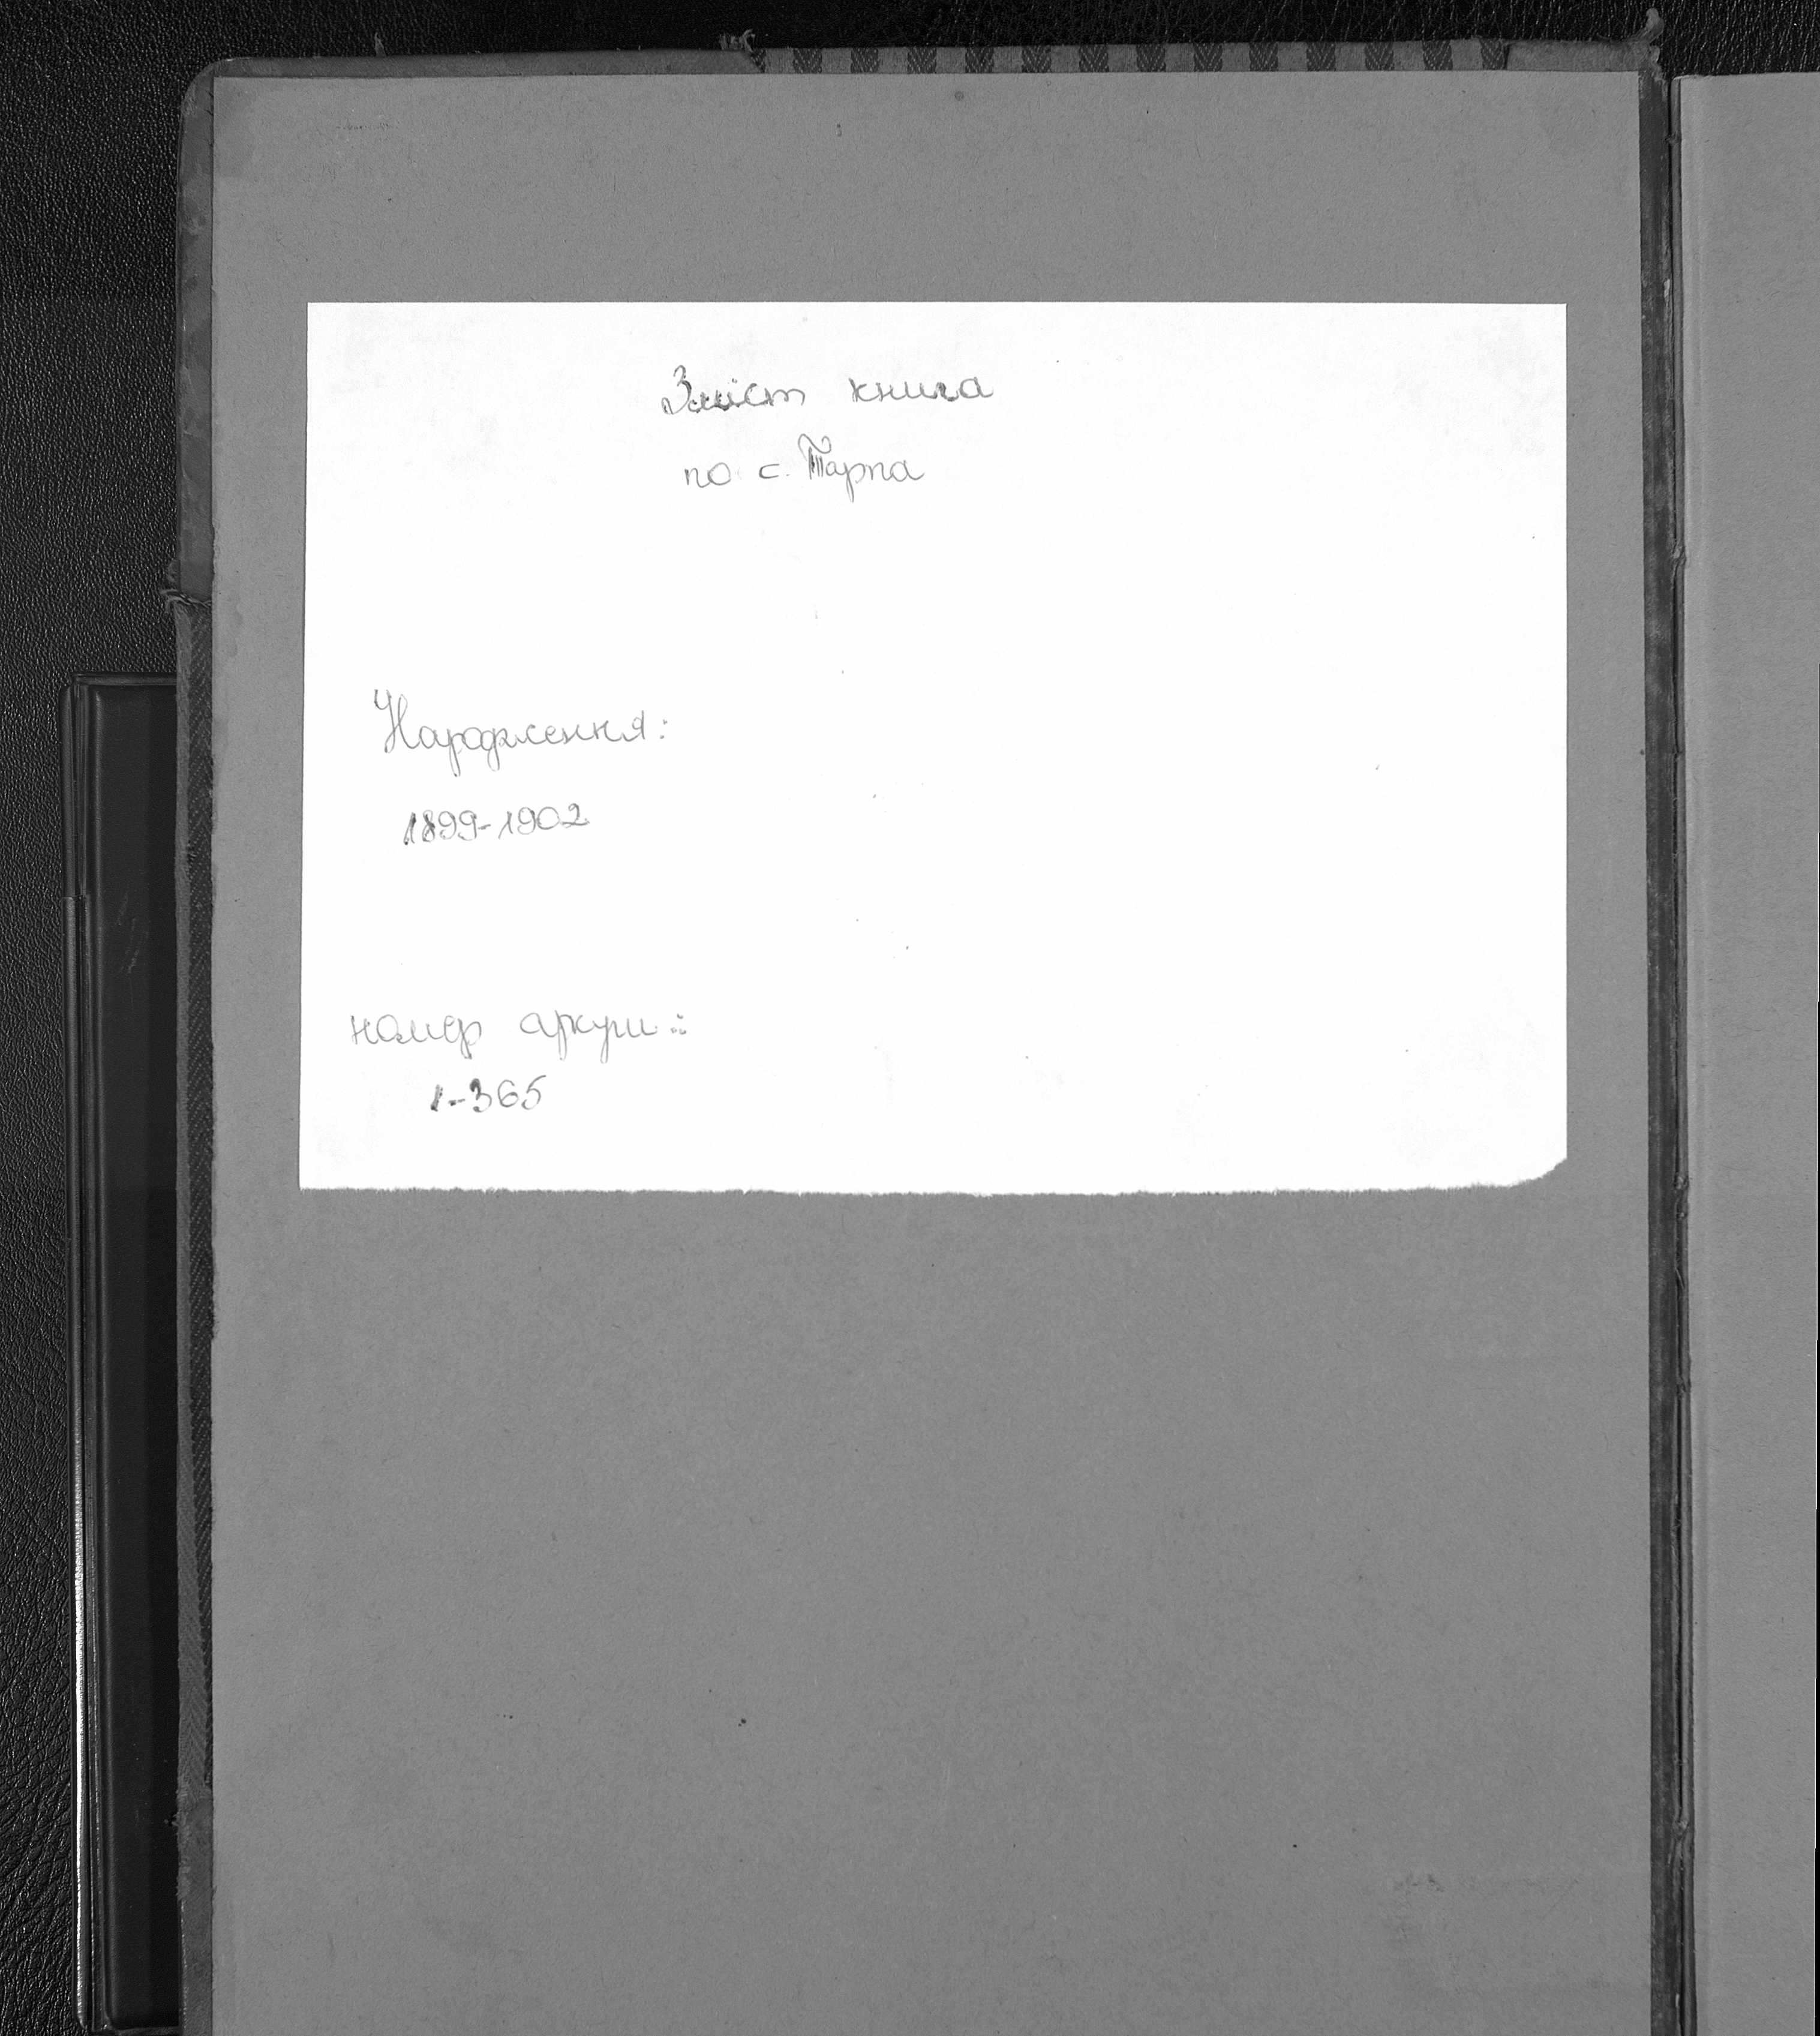 Зміст книга
по с. Тарпа
Народження:
1899-1902
номер аркуш:
1-365